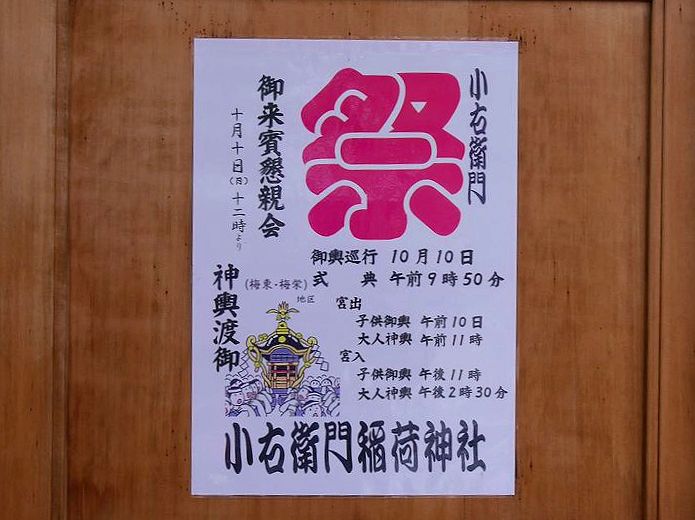 小右衛門
祭
御来賓懇親会
十月十日(日)十二時より
御輿巡行 10月10日
式典 午前9時50分
神輿渡御
(梅東・梅栄)
地区
宮出
子供御輿 午前10日
大人神輿 午前11時
宮入
子供御輿 午後11時
大人神輿 午後2時30分
小右衛門稲荷神社